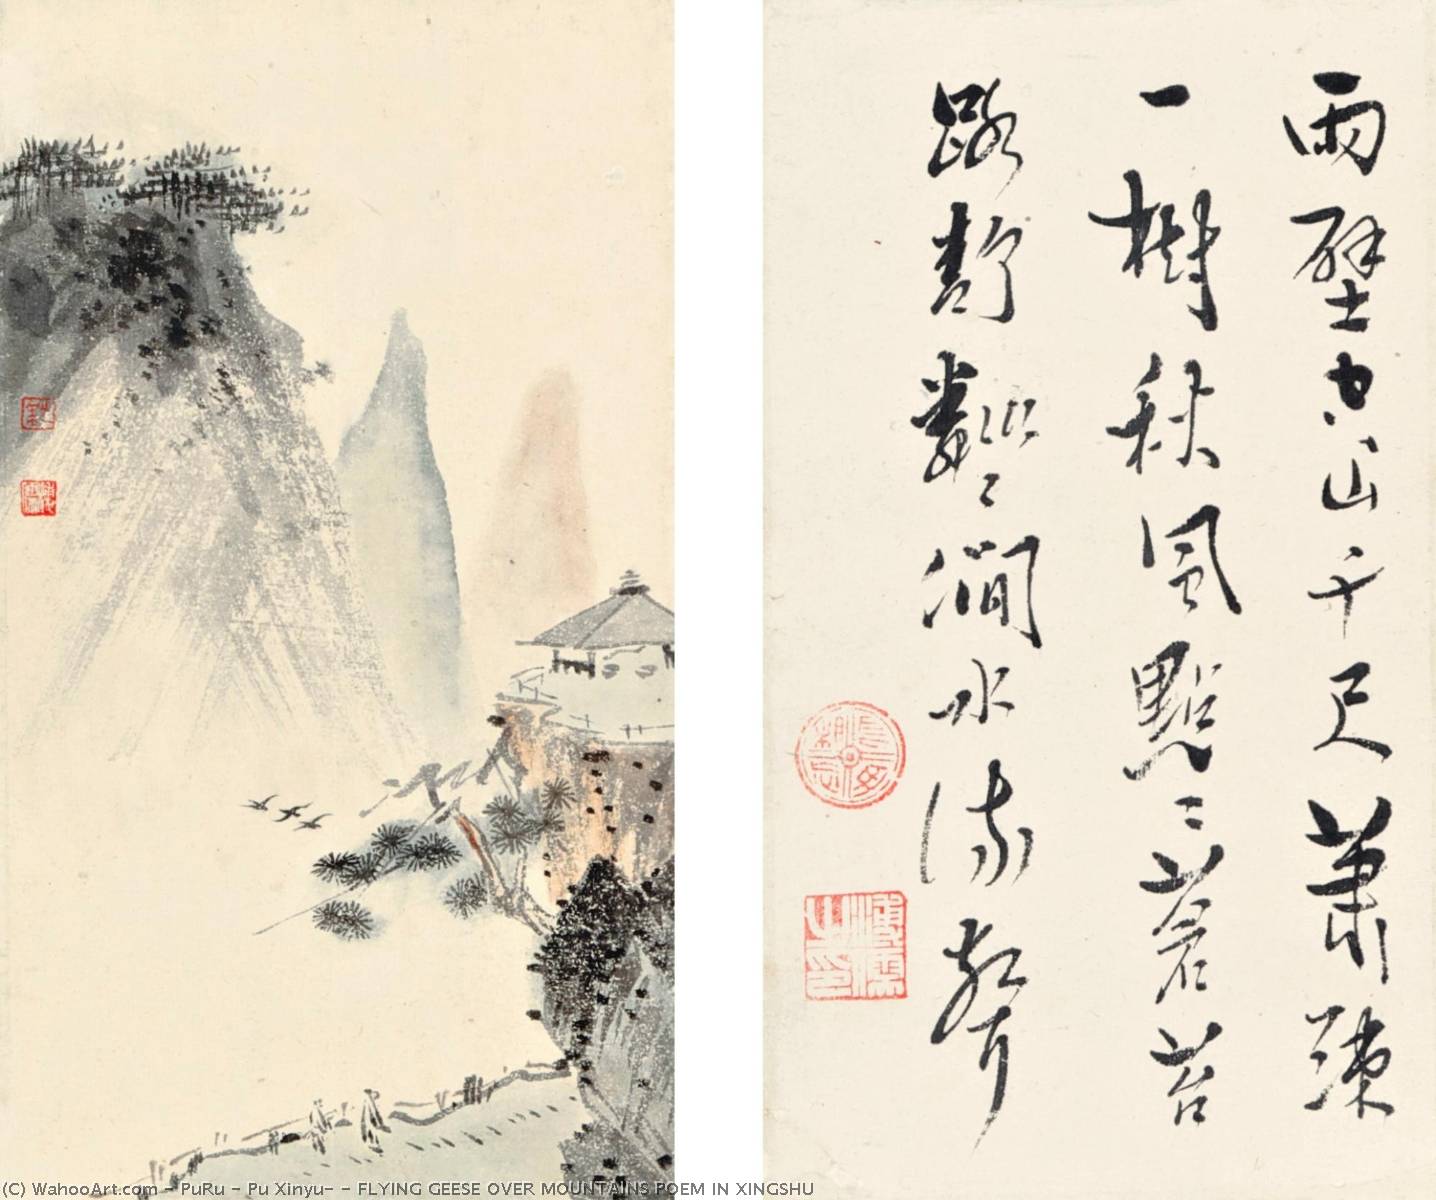 兩壁空山千尺蕭踈
一樹秋風點〻蒼苔
路靜粼〻澗水流聲
長毋相忘
溥儒之印
(C) WahooArt.com - PuRu - Pu Xinyu- - FLYING GEESE OVER MOUNTAINS POEM IN XINGSHU